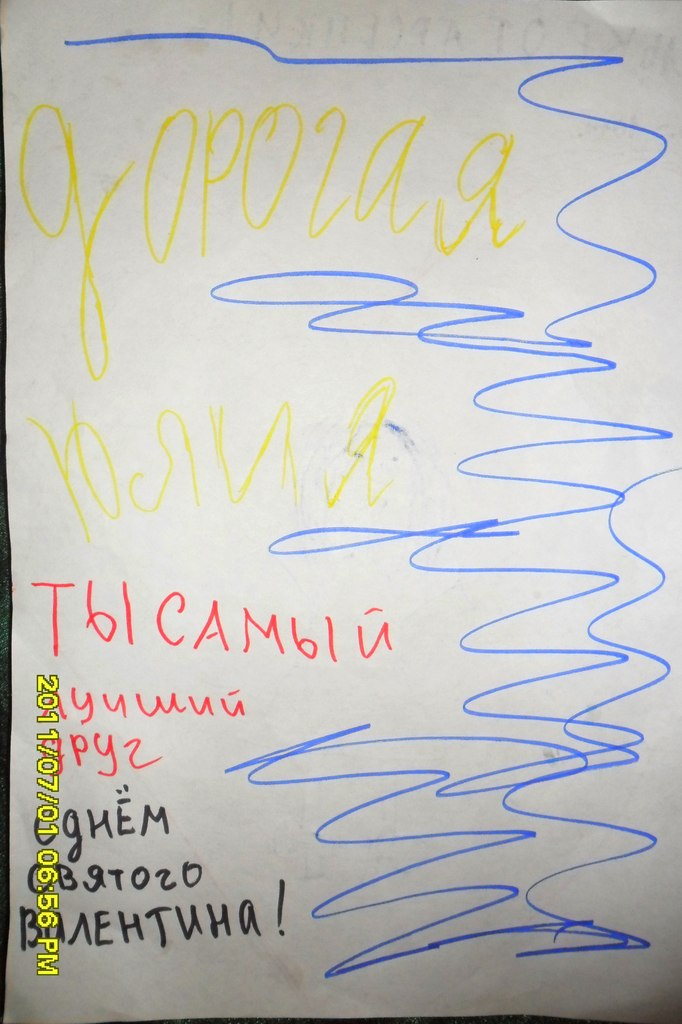 дорогая
Юлия
ТЫ САМЫЙ
лучший
друг
С ДНЁМ
святого
ВАЛЕНТИНА!
2011/07/01 06:56 PM